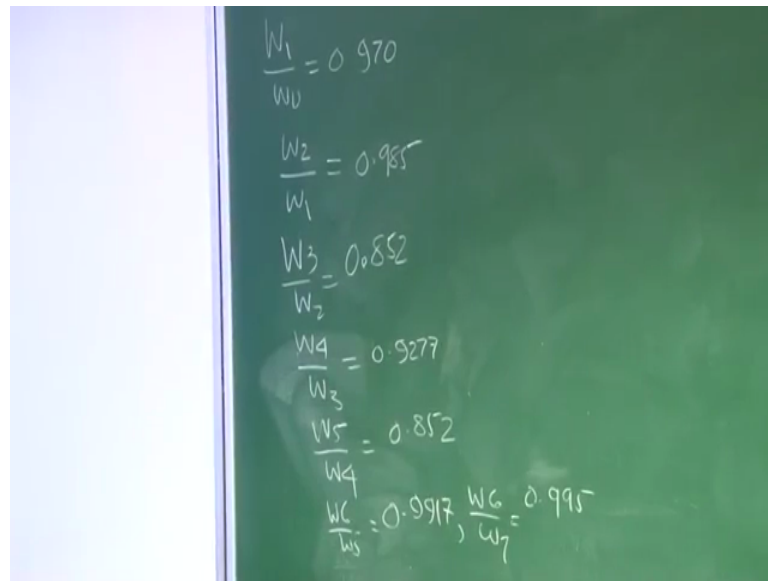 W1/W0 = 0.970
W2/W1 = 0.985
W3/W2 = 0.852
W4/W3 = 0.9277
W5/W4 = 0.852
W6/W5 = 0.9917, W6/W7 = 0.995